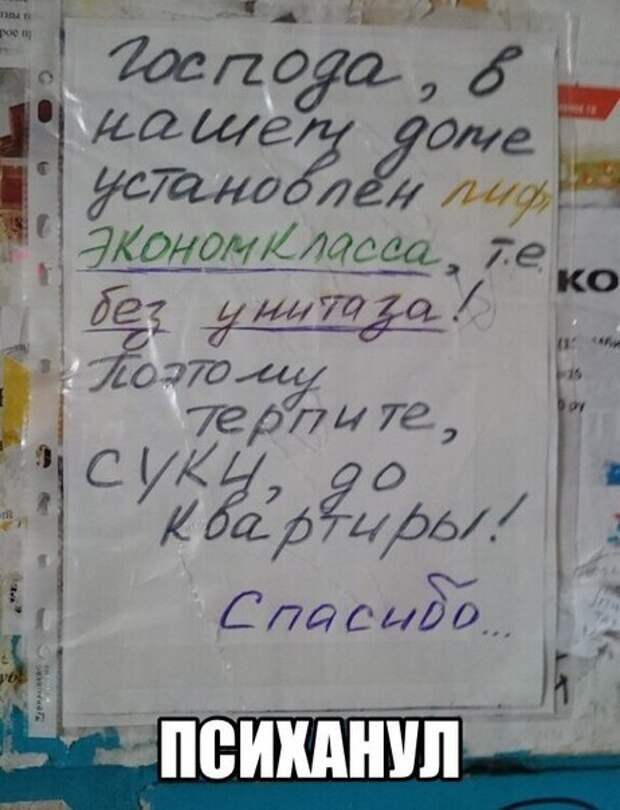 Господа, в
нашем доме
установлен лифт
ЭКОНОМКласса, т.е.
без унитаза!
Поэтому
терпите,
СУКИ, до
квартиры!
Спасибо...
ко
ПСИХАНУЛ